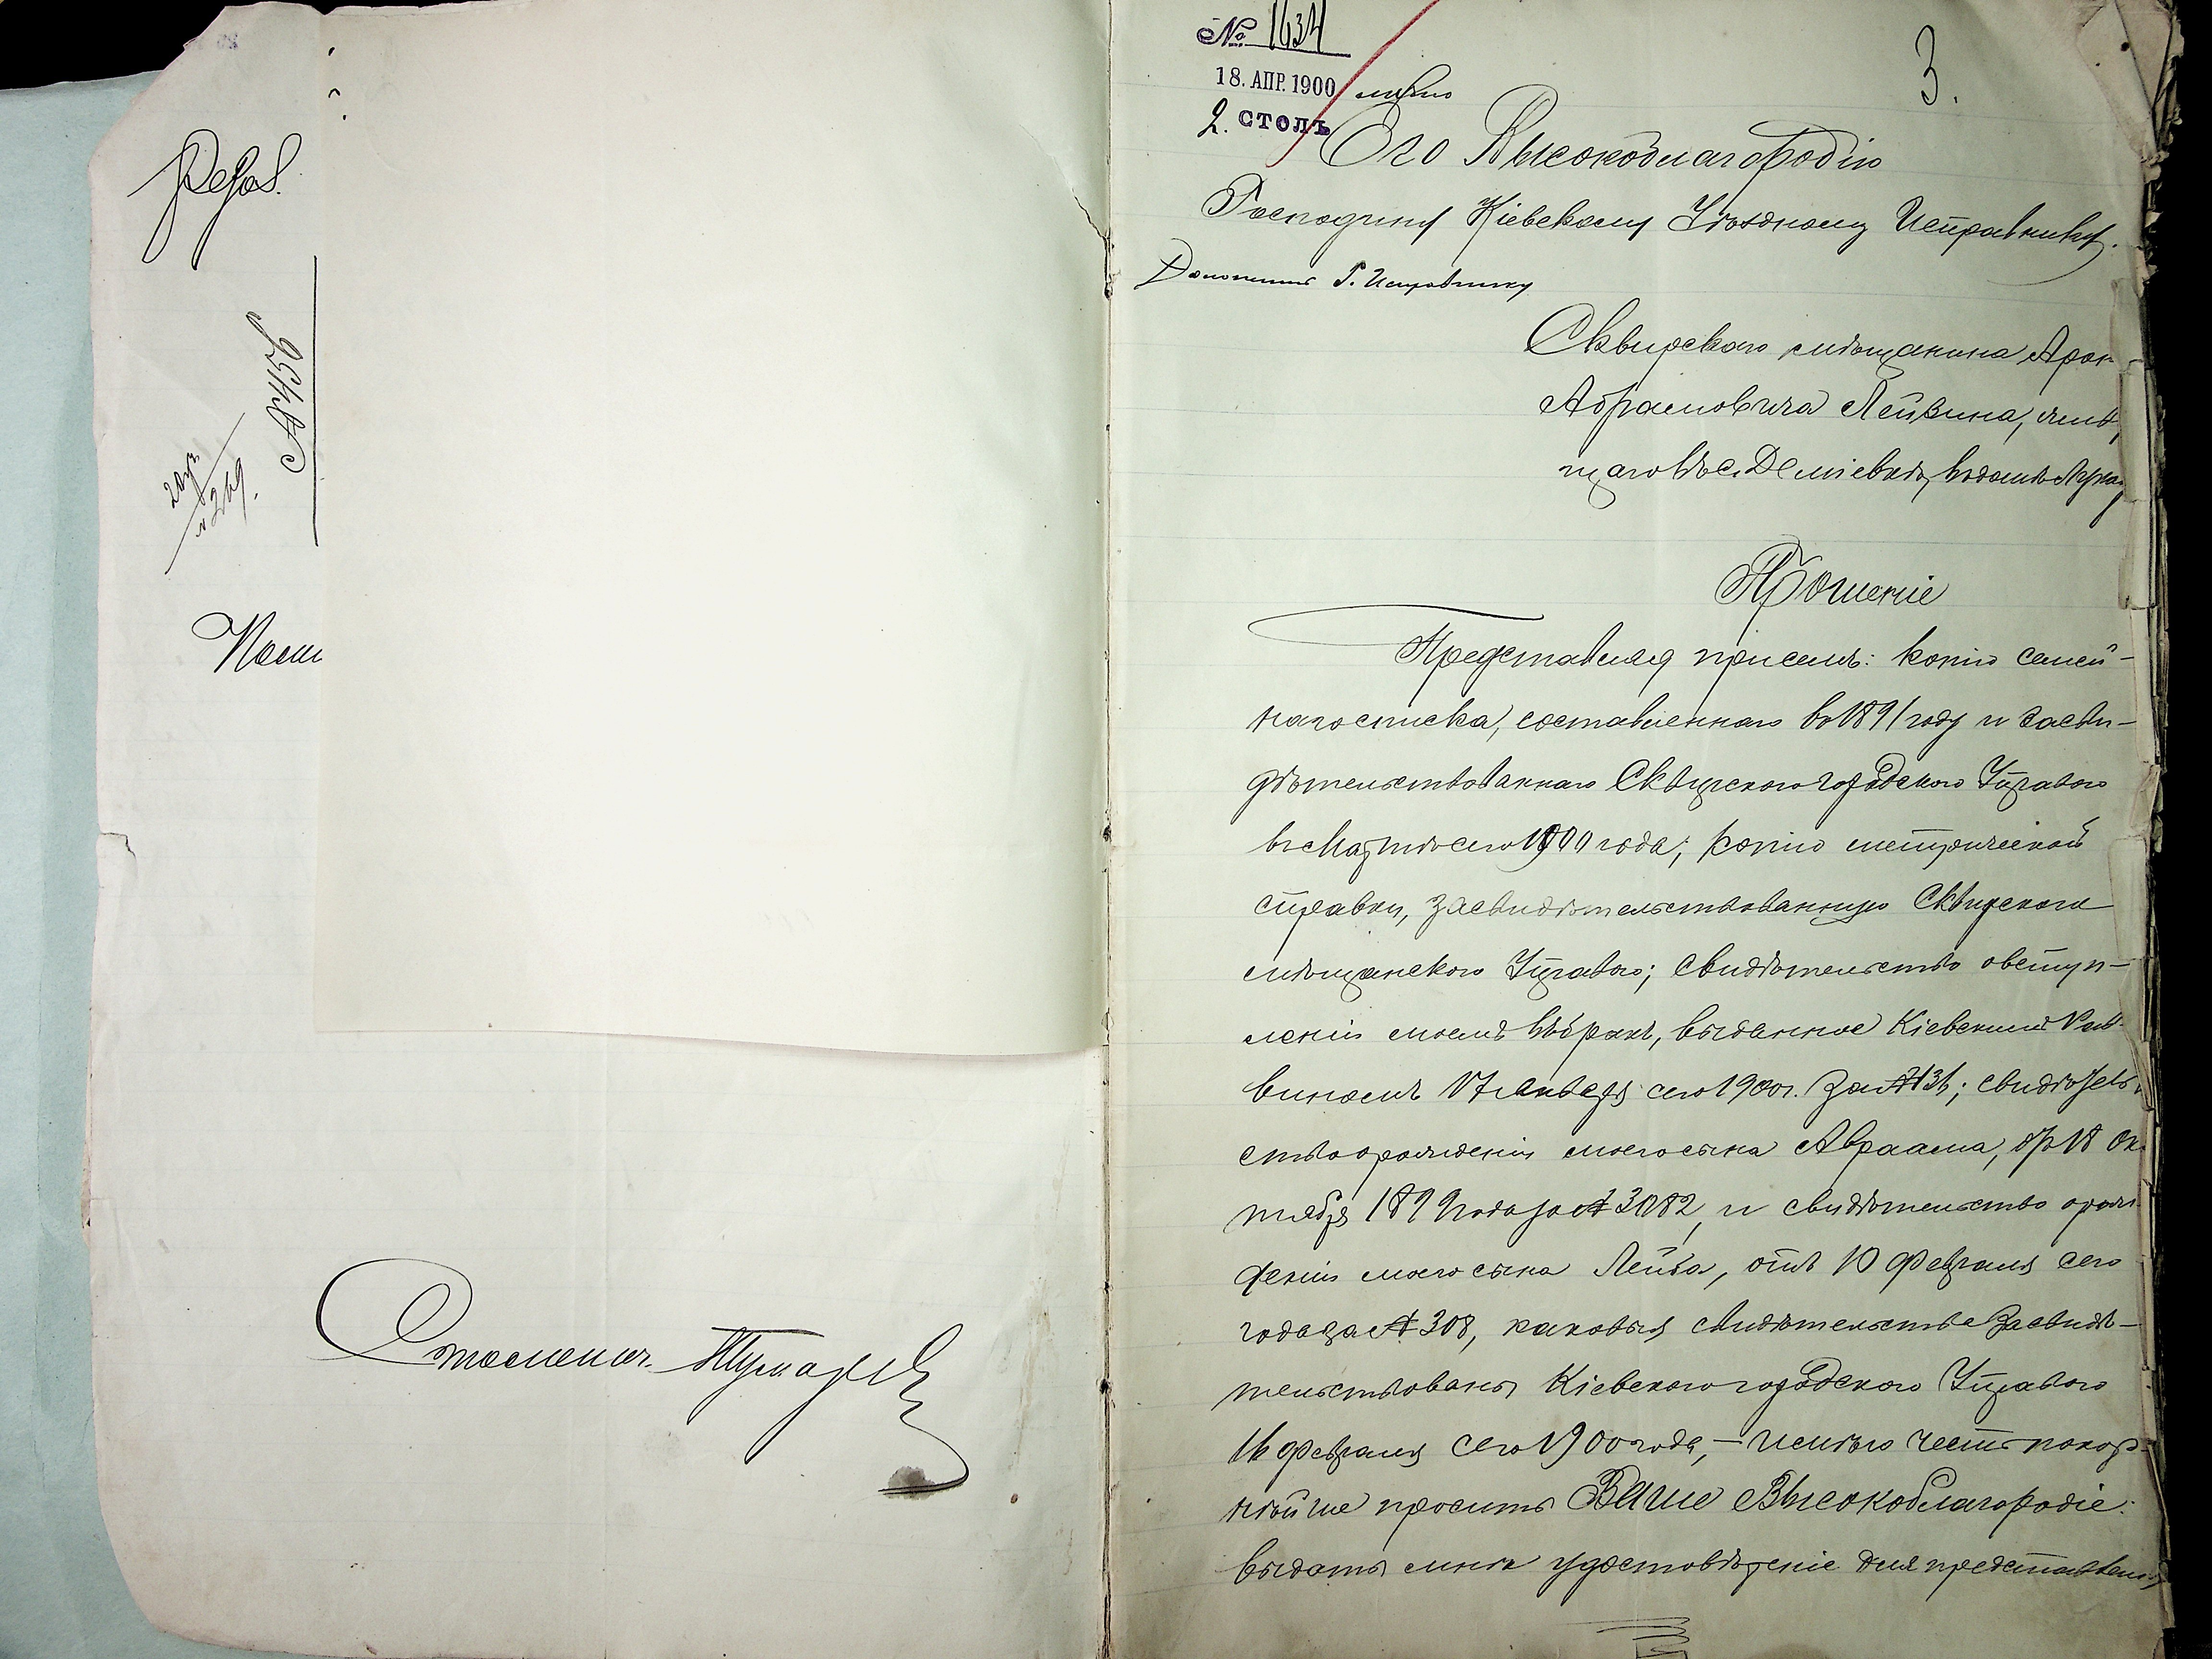 № 9456
№ 269.
Столонач.
№ 1634
18. АПР. 1900
2. СТОЛЪ
3.
Его Высокоблагородію
Господину Кіевскому Уѣздному Исправнику.
Г. Исправнику
Сквирскаго мѣщанина Арон
Абрамовича Лейзина, жив
щаго въ с. Деміевкѣ, въ домѣ
Прошеніе
Представляя при семъ: копію семей-
наго списка, составленнаго въ 1891 году и засви-
дѣтельствованнаго Сквирскою городскою Управою
въ Мартѣ сего 1900 года; копію метрической
справки, засвидѣтельствованную Сквирскою
мѣщанскою Управою; свидѣтельство о вступ-
леніи моемъ въ бракъ, выданное Кіевскимъ Рав-
виномъ 17 Января сего 1900 г. за № 136; свидѣтель
ство о рожденіи моего сына Авраама, отъ 18 Ок
тября 1899 года за № 3082, и свидѣтельство о рож
деніи моего сына Лейба, отъ 10 Февраля сего
года за № 308, каковыя свидѣтельства засвидѣ-
тельствованы Кіевскою городскою Управою
16 Февраля сего 1900 года, – имѣю честь покор-
нѣйше просить Ваше Высокоблагородіе:
выдать мнѣ удостовѣреніе для представлен